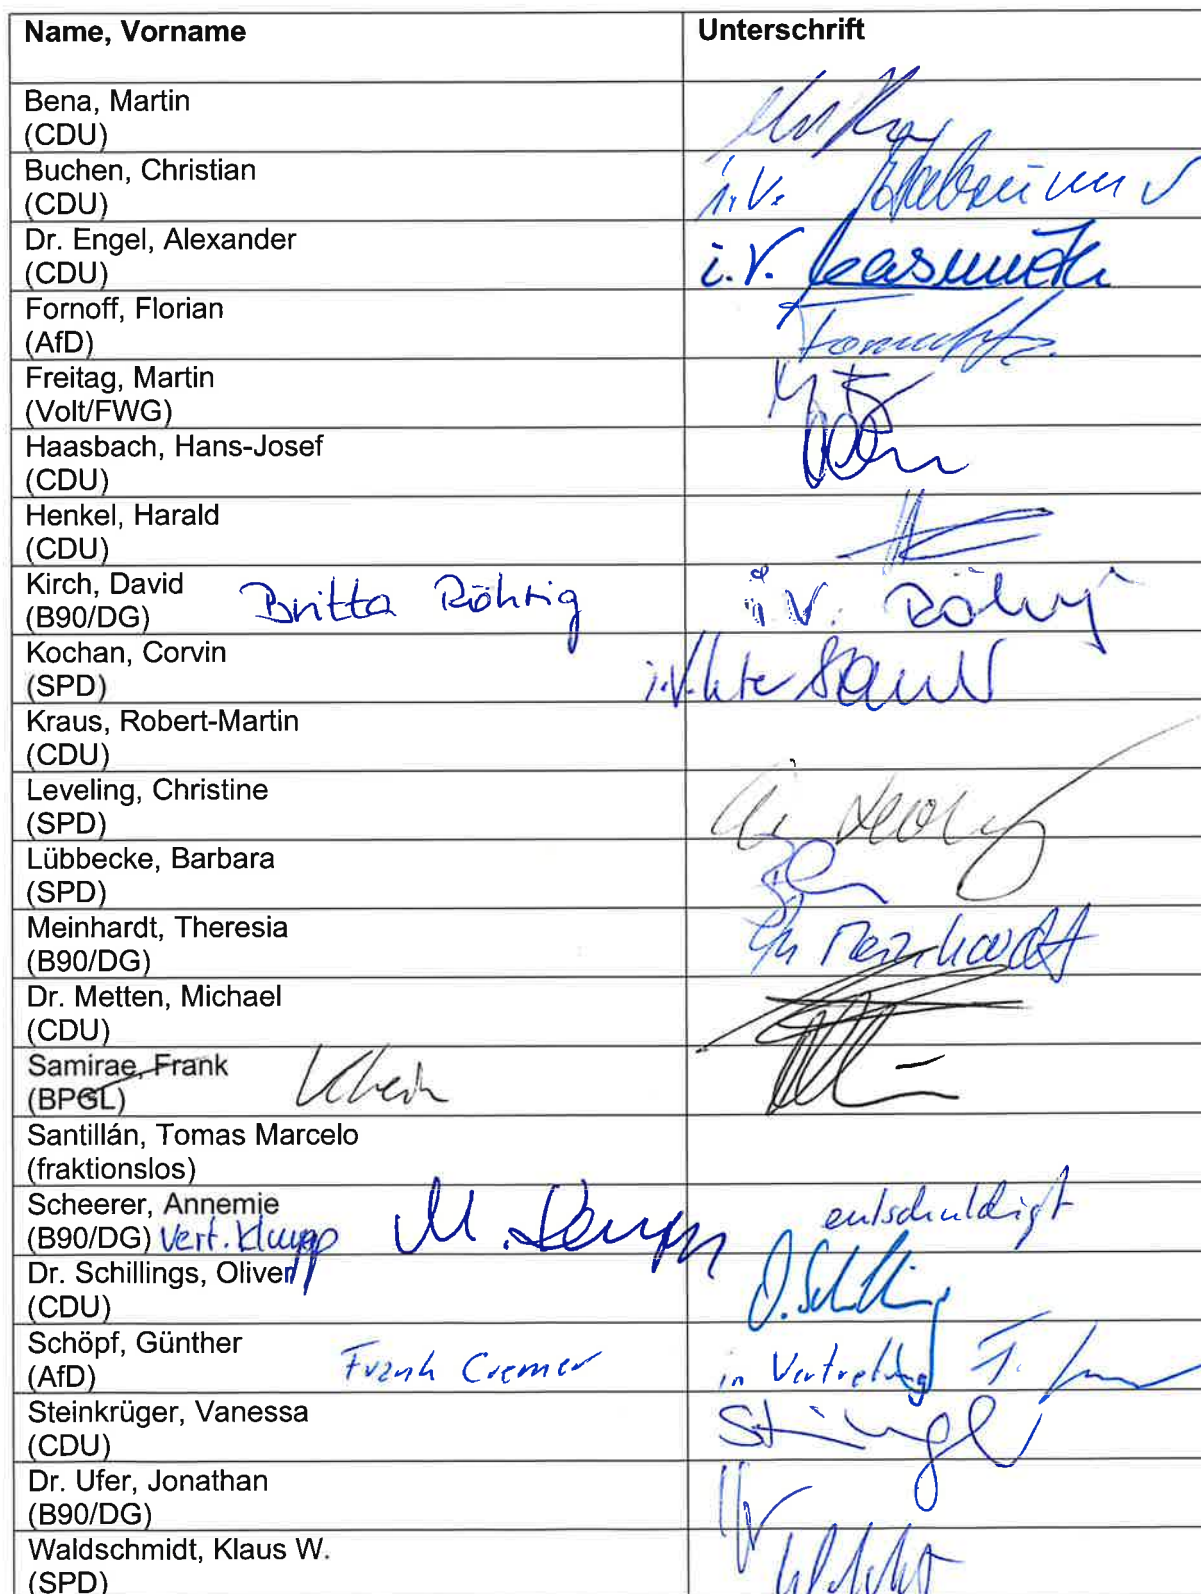 Name, Vorname Unterschrift
Bena, Martin
(CDU)
Buchen, Christian
(CDU) i.V.
Dr. Engel, Alexander
(CDU) i.V.
Fornoff, Florian
(AfD)
Freitag, Martin
(Volt/FWG)
Haasbach, Hans-Josef
(CDU)
Henkel, Harald
(CDU)
Kirch, David
(B90/DG) Britta Röhrig i.V. Röhrig
Kochan, Corvin
(SPD) i.V.
Kraus, Robert-Martin
(CDU)
Leveling, Christine
(SPD)
Lübbecke, Barbara
(SPD)
Meinhardt, Theresia
(B90/DG) Th Meinhardt
Dr. Metten, Michael
(CDU)
Samirae, Frank
(BPGL)
Santillán, Tomas Marcelo
(fraktionslos)
Scheerer, Annemie entschuldigt
(B90/DG) Vert. Klupp
Dr. Schillings, Oliver
(CDU) O. Schilling
Schöpf, Günther
(AfD) Frank Cremer in Vertretung
Steinkrüger, Vanessa
(CDU)
Dr. Ufer, Jonathan
(B90/DG)
Waldschmidt, Klaus W.
(SPD)